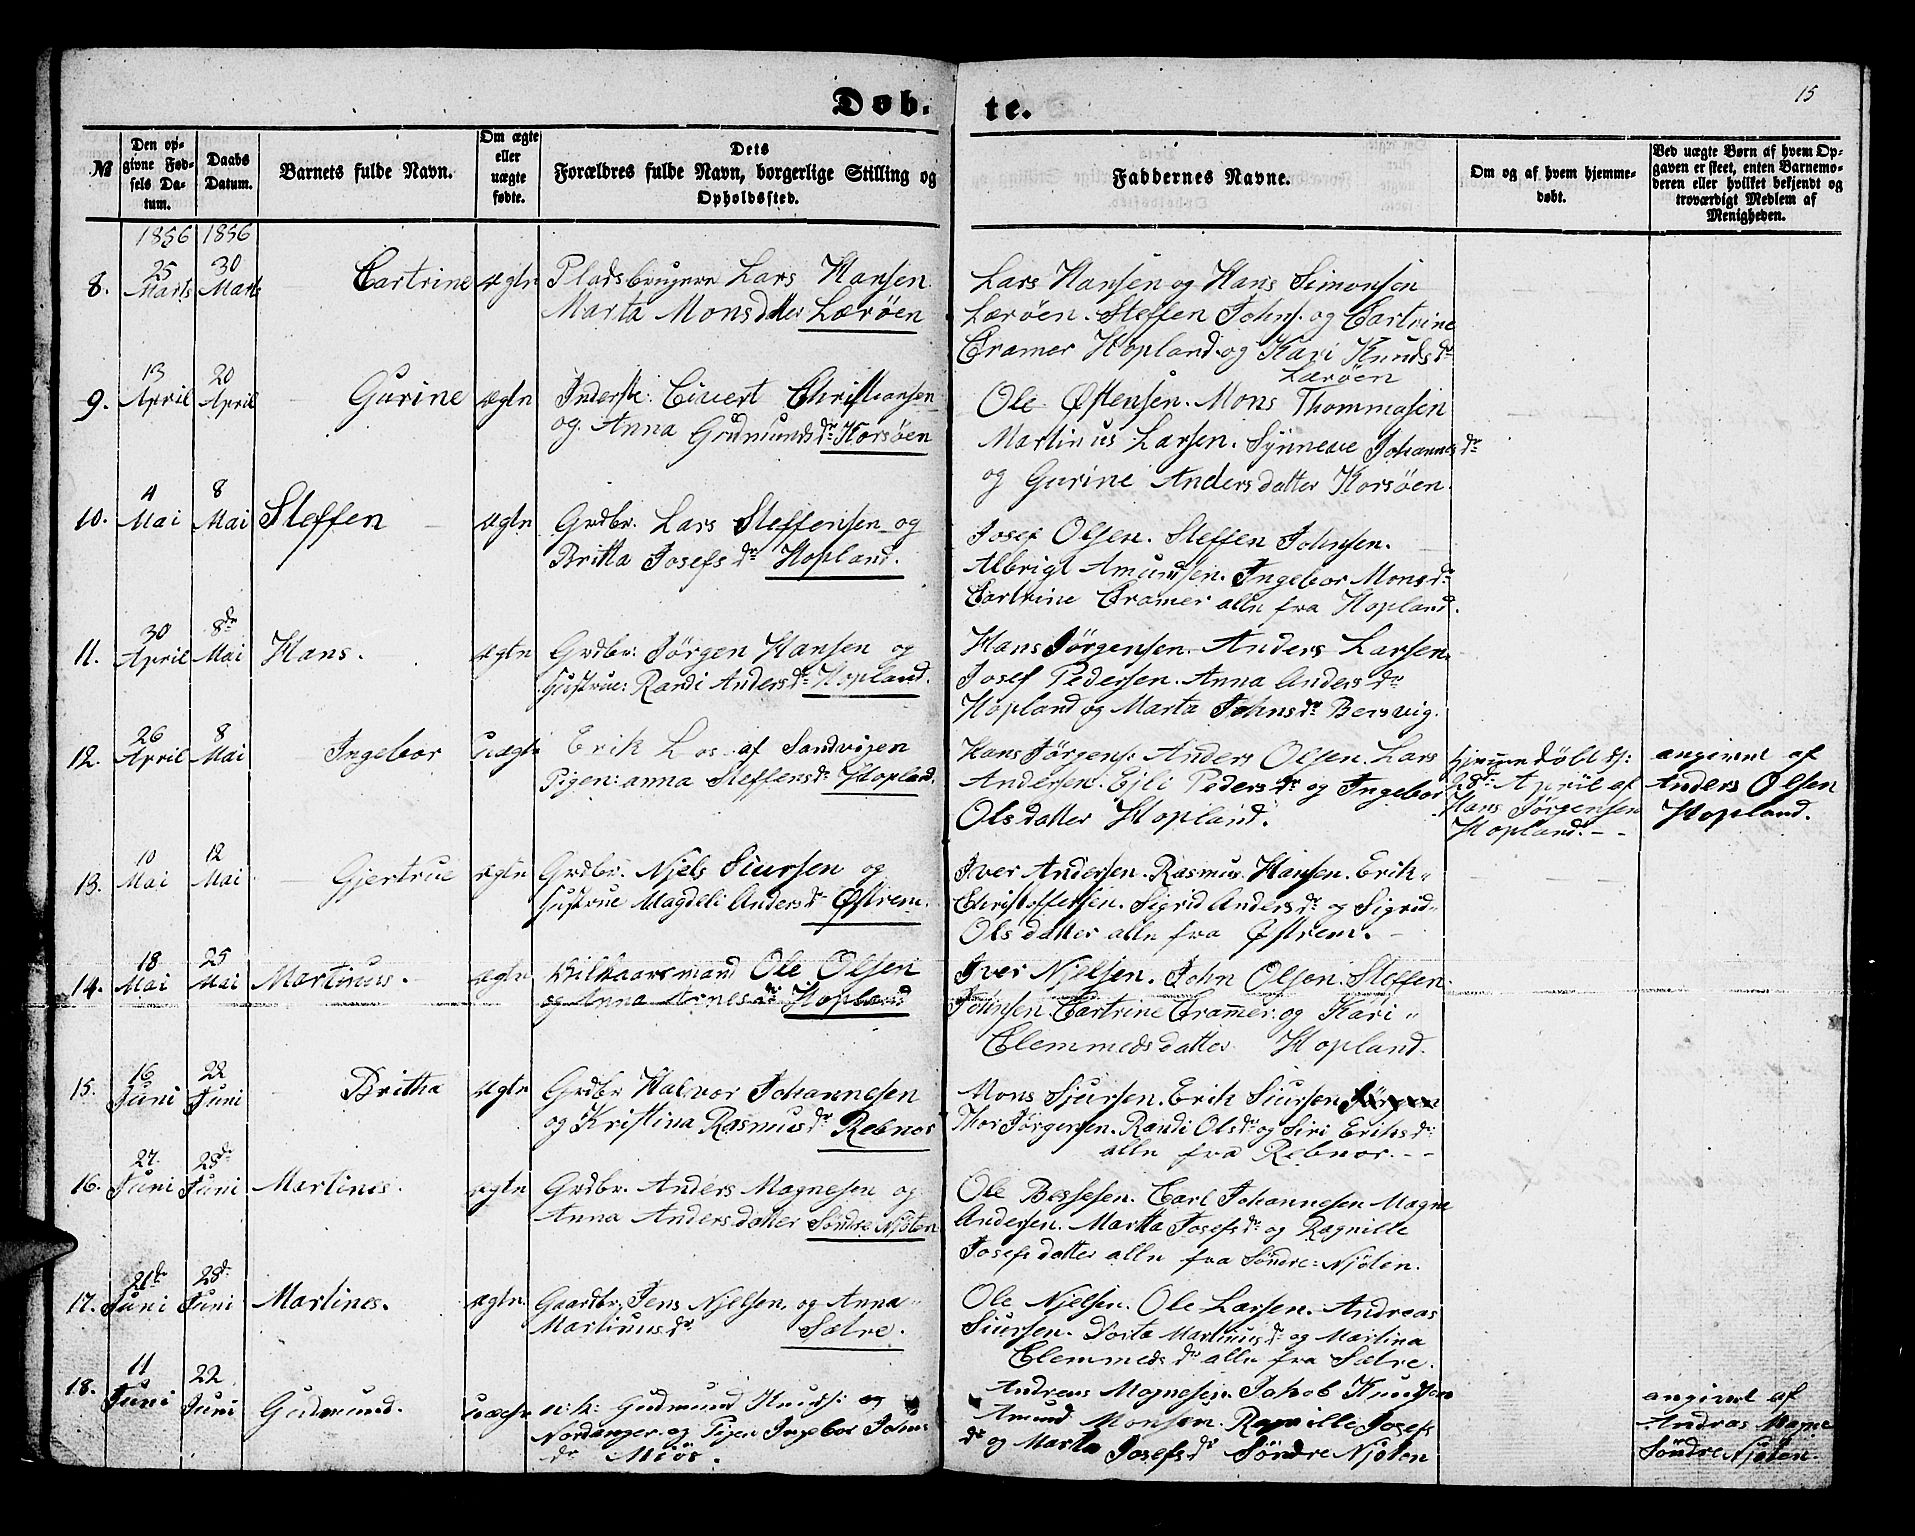 Døb.
te.
15
№
Den op-
givne Fød-
sels Da-
tum.
Daabs
Datum.
Barnets fulde Navn.
Om ægte
eller
uægte
fødte.
Dets
Forældres fulde Navn, borgerlige Stilling og
Opholdssted.
Faddernes Navne.
Om og af hvem hjemme-
døbt.
Ved uægte Børn af hvem Op-
gaven er skeet, enten Barnemo-
deren eller hvilket bekjendt og
troværdigt Medlem af
Menigheden.
1856 1856
8. 25 Marts 30 Marts Cartrine ægte Pladsbrugere Lars Hansen
Marta Monsdatter Lærøen
Lars Hansen og Hans Simonsen
Lærøen. Steffen Johns. og Cartrine
Cramer Hopland og Kari Knudsdr
Lærøen
9. 13 April 20 April Gurine ægte Inderst: Eivert Christiansen
og Anna Gudmundsdr Korsøen
Ole Østensen. Mons Thommasen
Martinus Larsen. Synneve Johannesdr
og Gurine Andersdatter Korsøen.
10. 4 Mai 8 Mai Steffen ægte Grdbr. Lars Steffensen og
Britta Josefsdr Hopland.
Josef Olsen. Steffen Johnsen.
Albrigt Amundsen. Ingebor Monsdr
Cartrine Cramer alle fra Hopland.
11. 30 April 8de Mai Hans. ægte Grdbr: Jørgen Hansen og
Hustrue: Randi Andersdr Hopland.
Hans Jørgensen. Anders Larsen.
Josef Pedersen. Anna Andersdr
Hopland og Marta Johnsdr Bersvig.
12. 26 April 8 Mai Ingebor uægte Erik Los af Sandvigen
Pigen: Anna Steffensdr Hopland.
Hans Jørgens: Anders Olsen. Lars
Andersen. Ejli Pedersdr og Ingebor
Olsdatter Hopland.
hjemmedøbt d:
28de April af
Hans Jørgensen
Hopland.--
angivet af
Anders Olsen
Hopland.
13. 10 Mai 12 Mai Gjertrue ægte Grdbr. Njels Siursen og
Hustrue Magdeli Andersdr Østrem.
Iver Andersen. Rasmus Hansen. Erik
Christoffersen. Sigrid Andersdr og Sigrid
Olsdatter alle fra Østrem.
14. 18 Mai 25 Mai Martinus. ægte Vilkaarsmand Ole Olsen
og Anna Arnesdr Hopland
Iver Njelsen. John Olsen. Steffen
Johnsen. Cartrine Cramer. og Kari
Clemmedsdatter Hopland.
15. 16 Juni 22 Juni Britha ægte Grdbr Halvor Johannesen
og Kristina Rasmusdr Rebnor
Mons Sjursen. Erik Siursen Jørgen
Thor Jørgensen. Randi Olsdr og Siri Eriksdr
alle fra Rebnor.--
16. 27. Juni 28de Juni Martines. ægte Grdbr. Anders Magnesen og
Anna Andersdatter Søndre Njøten
Ole Bessesen. Carl Johannesen Magne
Andersen. Martta Josefsdr og Ragnille
Josefsdatter alle fra Søndre: Njøten.
17. 21de Juni 28de Juni Martines. ægte Gaardbr. Jens Njelsen og Anna
Martinusdr Sætre.
Ole Njelsen. Ole Larsen. Andreas
Siursen. Dorta Martinusdr og Martina
Clemmedsdr alle fra Sætre.
18. 11 Juni 22 Juni Gudmund. uægte u:k: Gudmund Knuds: og
Nordanger og Pigen Ingebor Johns
dr Miøs.
Andreas Magnesen. Jakob Knudsen
Amund Monsen. Ragnille Josefs
dr og Marta Josefsdr Søndre Njøten
angivet af
Andras Magne
Søndre Njøten.